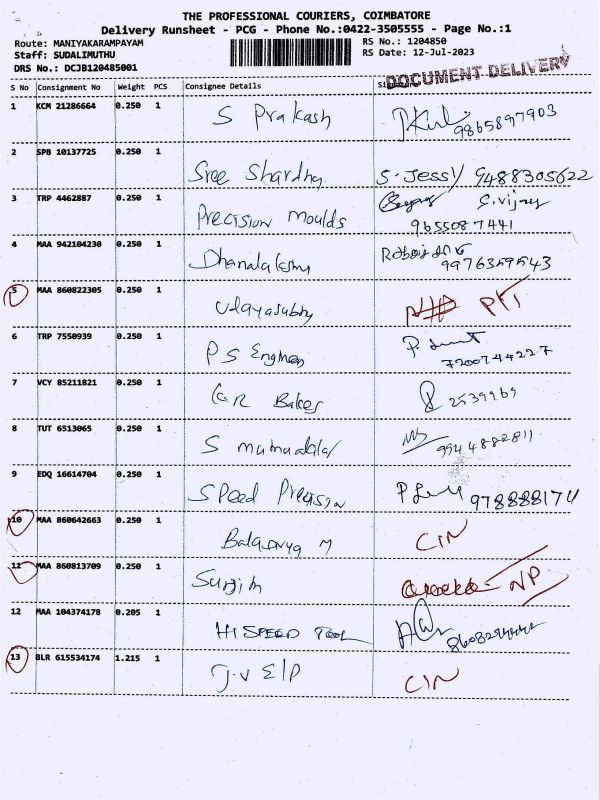 THE PROFESSIONAL COURIERS, COIMBATORE
Delivery Runsheet - PCG - Phone No.:0422-3505555 - Page No.:1
Route: MANIYAKARAMPAYAM RS No.: 1204850
Staff: SUDALIMUTHU RS Date: 12-Jul-2023
DRS No.: DCJB120485001
DOCUMENT DELIVERY
S No Consignment No Weight PCS Consignee Details
1 KCM 21286664 0.250 1
S Prakash 9865897903
2 SPB 10137725 0.250 1
Sree Shardha S. Jessy 9488305622
3 TRP 4462887 0.250 1
Precision Moulds S. vijay
9655087441
4 MAA 942104230 0.250 1
Dhanalakshmi
9976359543
5 MAA 860822305 0.250 1
6 TRP 7550939 0.250 1
P S Engineers
7200744227
7 VCY 85211821 0.250 1
G R Bakes 2539969
8 TUT 6513065 0.250 1
S 9944882811
9 EDQ 16614704 0.250 1
Speed Precision 978888174
10 MAA 860642663 0.250 1
M CIN
11 MAA 860813709 0.250 1
NP
12 MAA 104374178 0.205 1
HI SPEED TOOL
13 BLR 615534174 1.215 1
J.V E/P CIN